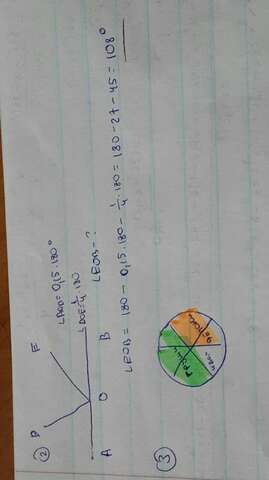 ②
∠AOD = 0,15·180°
∠DOE = 1/4·180
∠EOB - ?
D E
A O B
∠EOB = 180 - 0,15·180 - 1/4·180 = 180 - 27 - 45 = 108°
③
груши